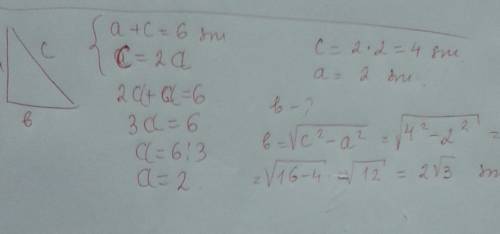 c
в
a + c = 6 sm
c = 2a
2a + a = 6
3a = 6
a = 6 : 3
a = 2
c = 2 · 2 = 4 sm
a = 2 sm
в - ?
в = √c² - a² = √4² - 2² =
= √16 - 4 = √12 = 2√3 sm